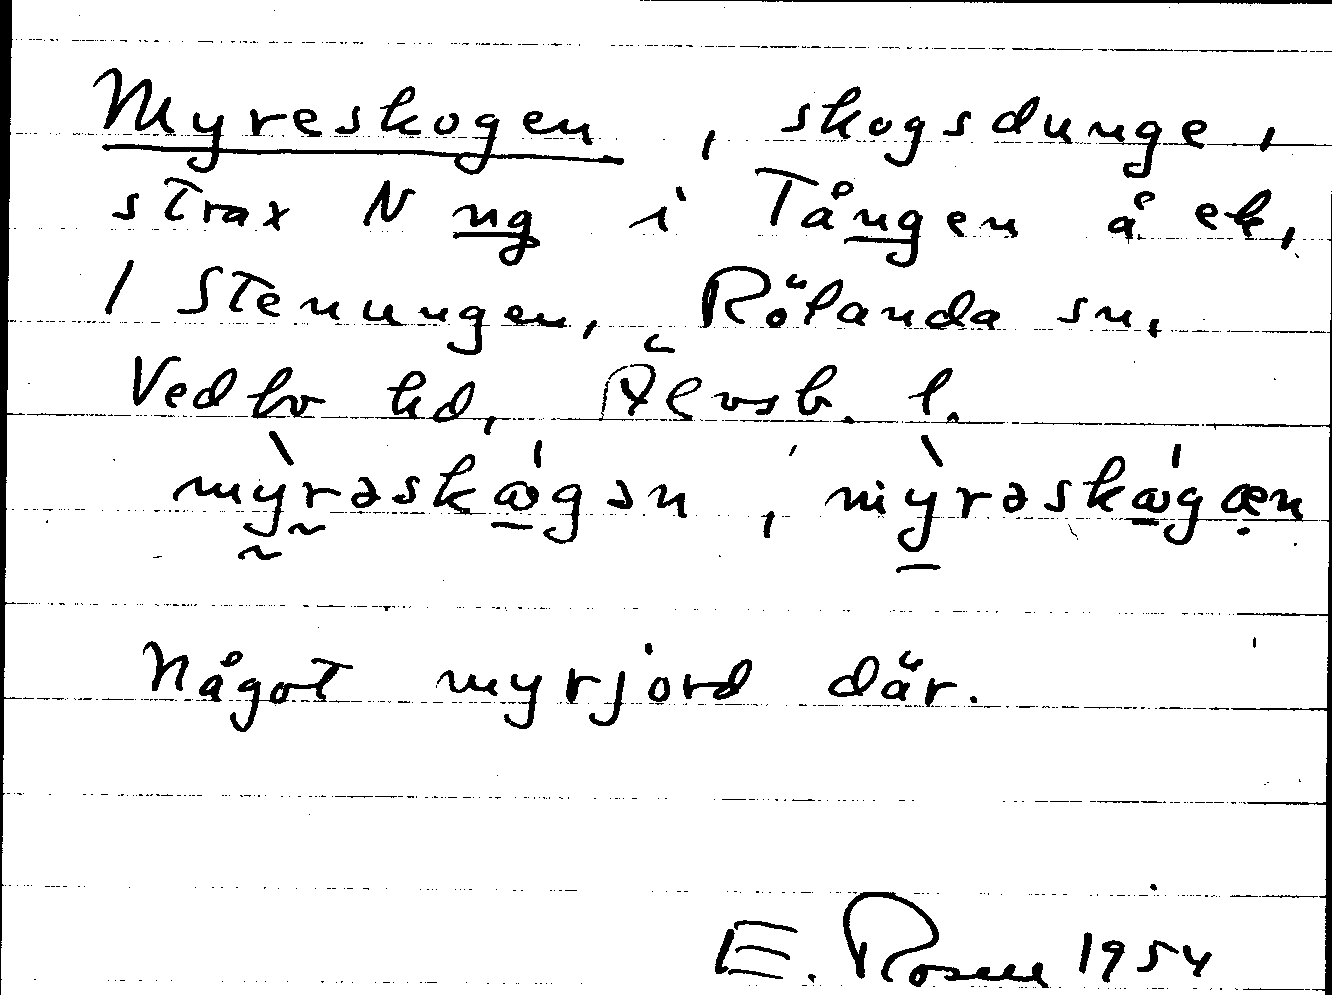 Myreskogen, skogsdunge,
strax N ng i Tången å ek,
1 Stenungen, Rölanda sn,
Vedbo hd, Älvsb. l.
my̆̀rəskɷ́gən, my̆̀rəskɷ́gæn
Något myrjord där.
E. Rosell 1954